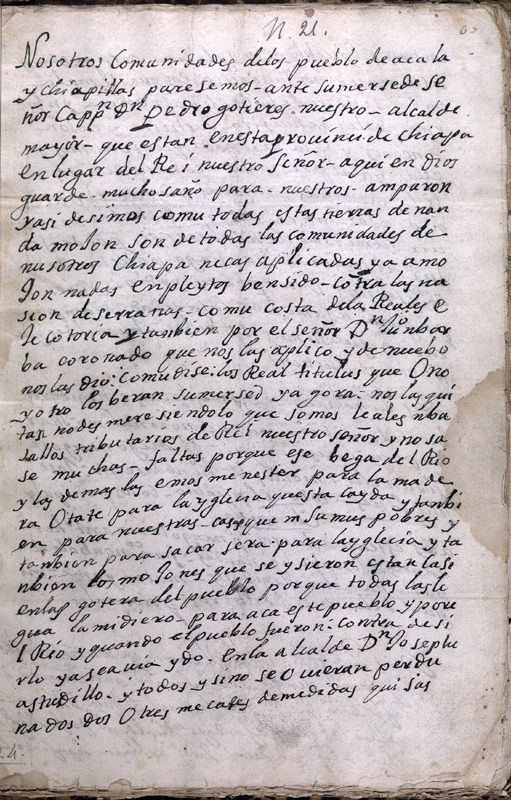 N. 21.
Nosotros Comunidades delos pueblo de aca la
y chiapillas paresemos - ante sumersede se
ñor Capp.n Dn pedro gotieres - nuestro - alcalde
mayor - que estan enesta provincia de chiapa
en lugar del Rei nuestro señor - aqui en dios
guarde - muchos año para - nuestros - amparon
yasi desimos comu todas estas tierras de nan
da moJon son de todas las comunidades de
nusotros Chiapa necas aplicadas ya amo
Jon nadas en pleytos bensido - cotra las na
sion deserranas - comu costa dela Reales e
Je cotoria - y tanbien por el señor Dn Ju nbar
ba coronado que nos las aplico y de nuebo
nos las dio: comu dise: los Real titulus que Ono
y otro los beran sumersed ya gora - nos las qui
tan nodes meresiendolo que somos leales nba
sallos tributarios de Rei nuestro señor y no sa
se muchas - faltas porque ese bega del Rio
y las demas las emos menester para la made
ra Otate para la yglecia questa cayda y tanbi
en para nuestras - casas que sumus pobres y
tanbien para sacar sera - para la yglecia y ta
nbien los moJones que se ysieron estan lasi
en las gotera del pueblo porque todas las li
gua la midiero - para aca este pueblo y pore
l Rio y quando el pueblo fueron - contra desi
rlo ya seavia ydo - enla alcalde Dn Joseplu
astudillo - y todos - y sino se o uieran perdu
na dos dos O tres mecates demedidas qui sas
24.